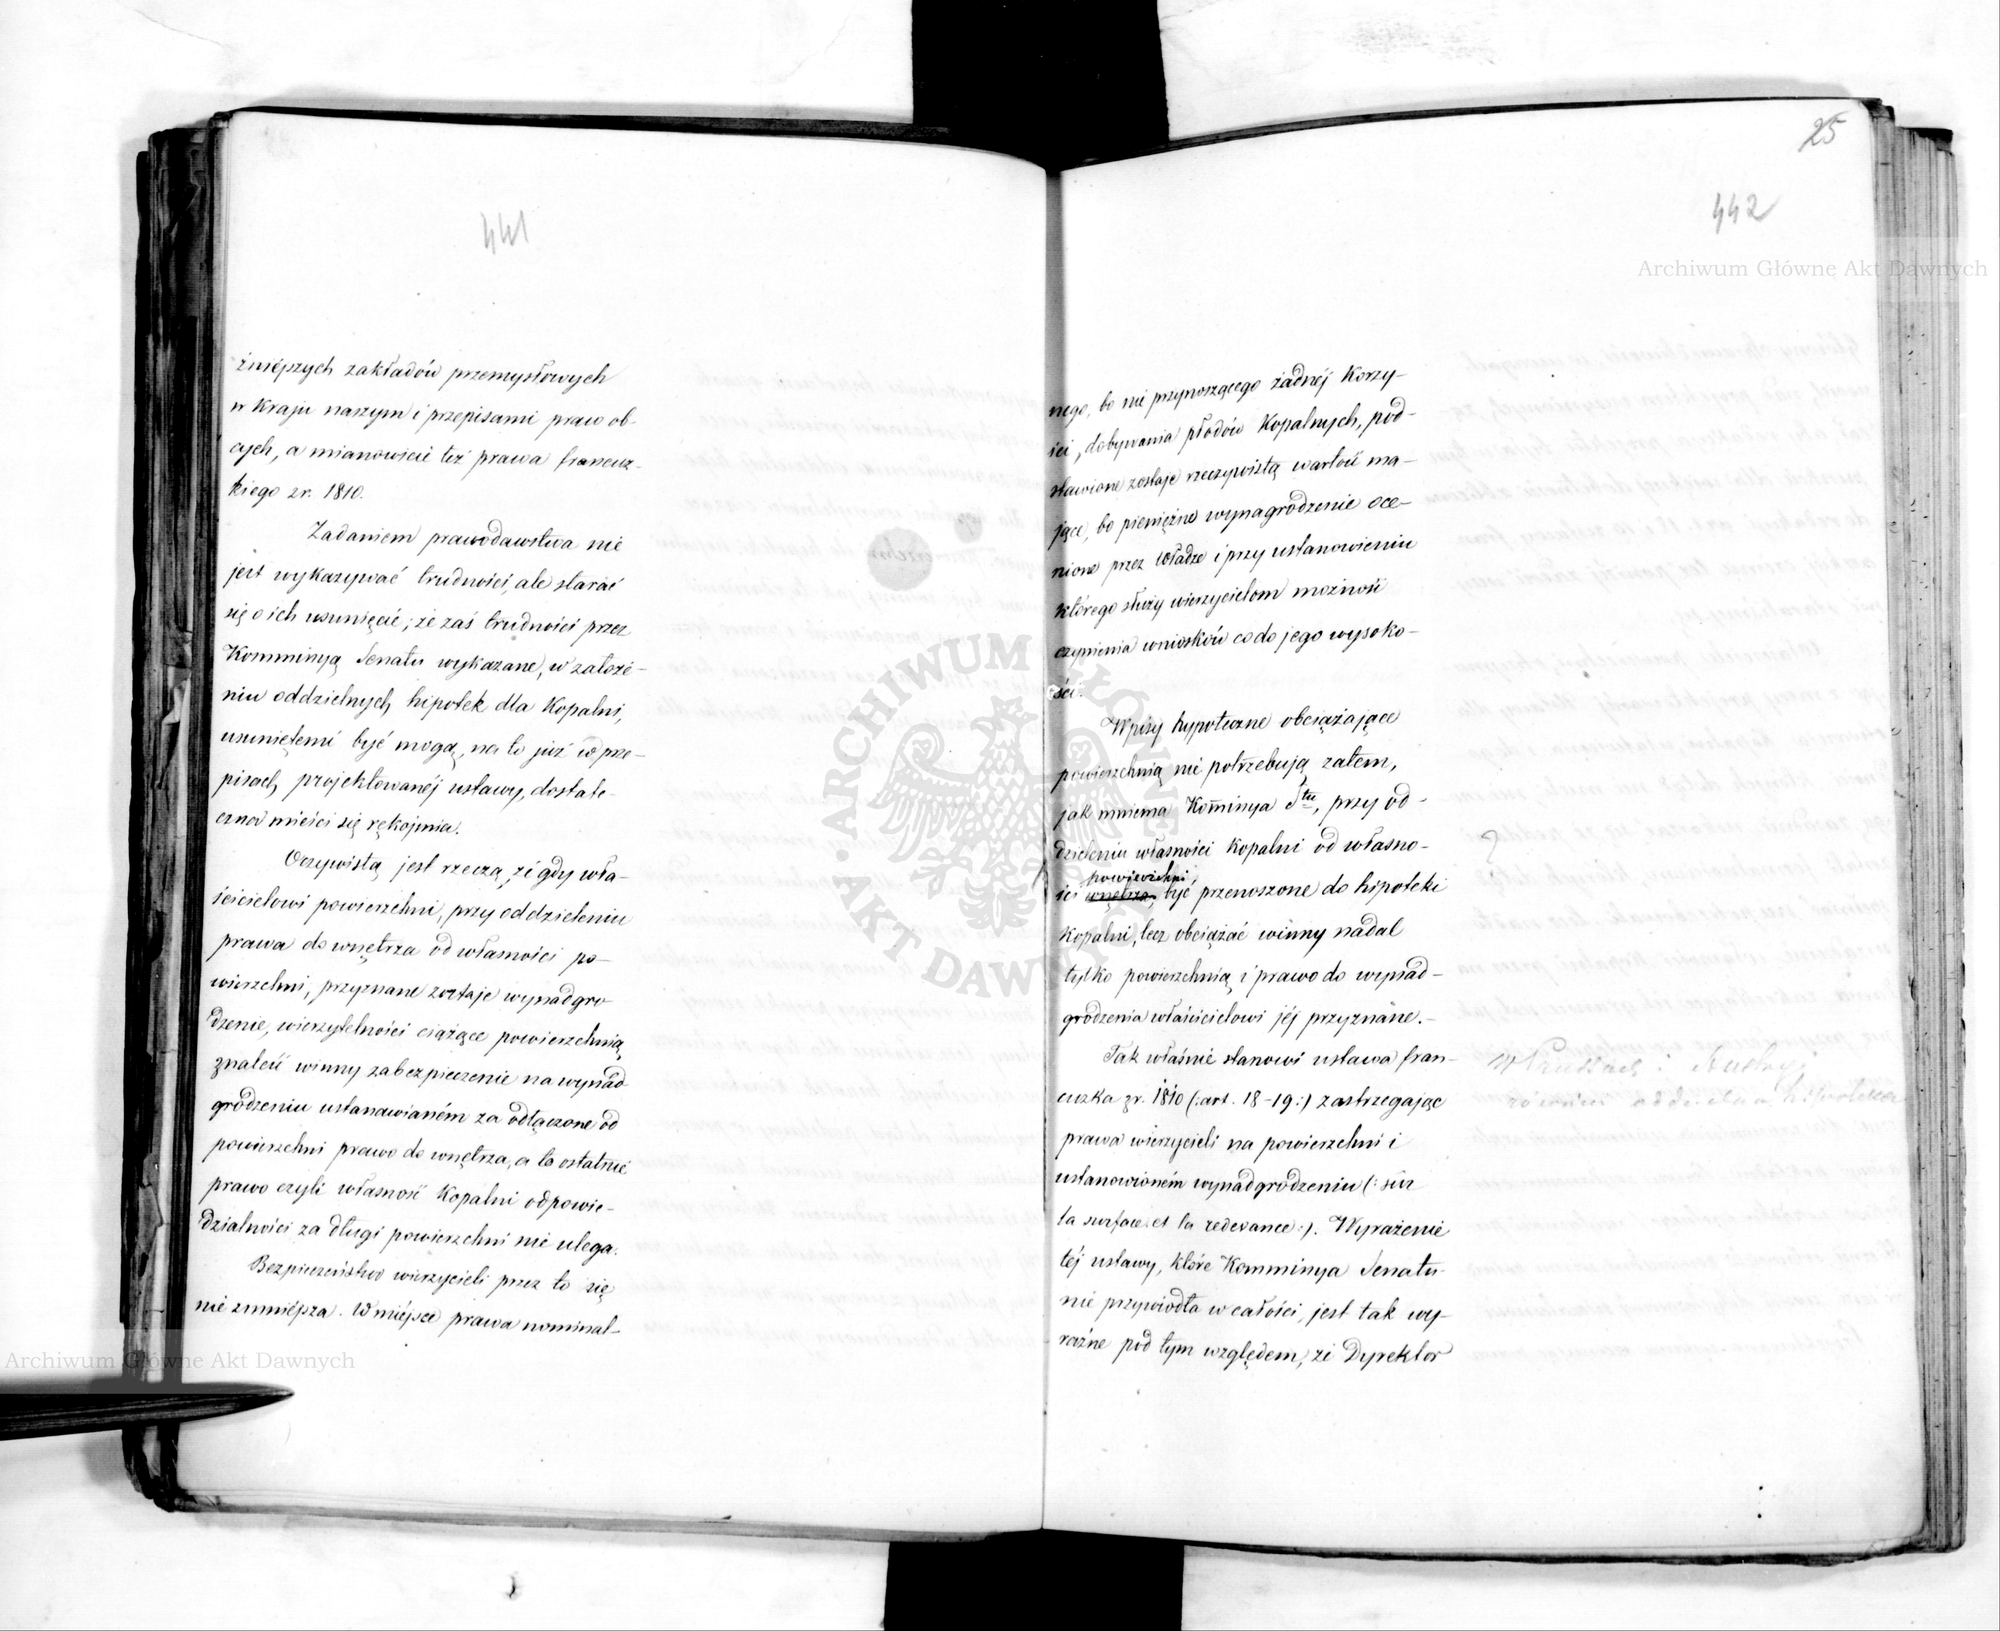 441
żniejszych zakładów przemysłowych
w Kraju naszym i przepisami praw ob-
cych, a mianowicie też prawa francuz-
kiego z r. 1810.
Zadaniem prawodawstwa nie
jest wykazywać trudności, ale starać
się o ich usunięcie; że zaś trudności przez
Komminyą Senatu wykazane, w założe-
niu oddzielnych hipotek dla Kopalni,
usuniętemi być mogą, na to już w prze-
pisach projektowanéj ustawy, dostate-
czna mieści się rękojmia.
Oczywistą jest rzeczą, że gdy wła-
ścicielowi powierzchni, przy oddzieleniu
prawa do wnętrza od własności po-
wierzchni, przyznane zostaje wynadgro-
dzenie, wierzytelności ciążące powierzchnią,
znaleść winny zabezpieczenie na wynad-
grodzeniu ustanawianém za odłączone od
powierzchni prawo do wnętrza, a to ostatnie
prawo czyli własność Kopalni odpowie-
dzialności za długi powierzchni nie ulega.
Bezpieczeństwo wierzycieli przez to się
nie zmniéjsza. W miéjsce prawa nominal-
25
442
nego, bo nie przynoszącego żadnéj Korzy-
ści, dobywania płodów Kopalnych, pod-
stawione zostaje rzeczywistą wartość ma-
jące, bo pieniężne wynagrodzenie oce-
nione przez Władze i przy ustanowieniu
którego służy wierzycielom możność
czynienia wniosków co do jego wysoko-
ści.
Wpisy hypoteczne obciążające
powierzchnią nie potrzebują zatem,
jak mniema Kom̄inya Stu, przy od-
dzieleniu własności Kopalni od własno-
powierzchni,
ści wnętrza, być przenoszone do hipoteki
Kopalni, lecz obciążać winny nadal
tylko powierzchnią i prawo do wynad-
grodzenia właścicielowi jéj przyznane.-
Tak właśnie stanowi ustawa fran-
cuzka z r. 1810 (:art. 18-19:) zastrzegając
prawa wierzycieli na powierzchni i
ustanowioném wynadgrodzeniu (: sur
la surface et la redevance:). Wyrażenie
téj ustawy, które Komminya Senatu
nie przywiodła w całości, jest tak wy-
raźne pod tym względem, że Dyrektor
?
w Prusach i Austryi
również oddzielna hipoteka
Archiwum Główne Akt Dawnych
Archiwum Główne Akt Dawnych
ARCHIWUM GŁÓWNE AKT DAWNYCH